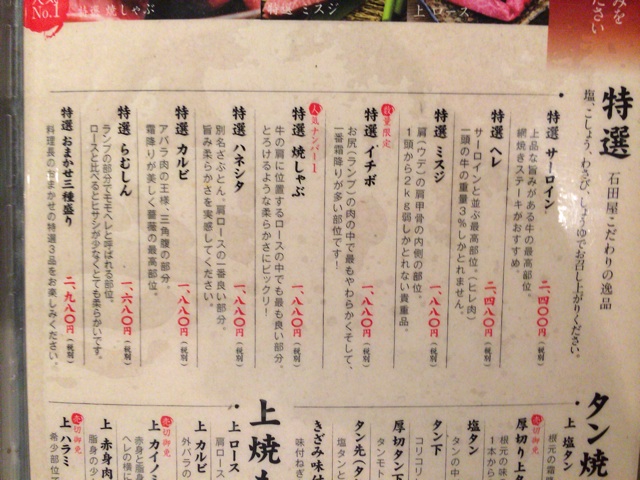 No.1
特選 焼しゃぶ
特選 ミスジ
上 ロース
みを
ださい
特選 石田屋こだわりの逸品
塩、こしょう、わさび、しょうゆでお召し上がりください。
特選 サーロイン
上品な旨みがある牛の最高部位。
網焼きステーキがおすすめ。
二、四〇〇円(税別)
特選 ヘレ
サーロインと並ぶ最高部位。(ヒレ肉)
一頭の牛の重量3%しかとれません。
二、四八〇円(税別)
特選 ミスジ
肩(ウデ)の肩甲骨の内側の部位。
1頭から2kg弱しかとれない貴重品。
一、八八〇円(税別)
数量限定
特選 イチボ
お尻(ランプ)の肉の中で最もやわらかくそして、
一番霜降りが多い部位です!
一、八八〇円(税別)
人気ナンバー1
特選 焼しゃぶ
牛の肩に位置するロースの中でも最も良い部分。
とろけるような柔らかさにビックリ!
一、八八〇円(税別)
特選 ハネシタ
別名ざぶとん。肩ロースの一番良い部分。
旨み柔らかさを実感してください。
一、八八〇円(税別)
特選 カルビ
アバラ肉の王様、三角腹の部分。
霜降りが美しく薔薇の最高部位。
一、八八〇円(税別)
特選 らむしん
ランプの部分でモモヘレと呼ばれる部位。
ロースと比べるとヒサシが少なくとても柔らかいです。
一、六八〇円(税別)
特選 おまかせ三種盛り
料理長のおまかせの特選3品をお楽しみください。
二、九八〇円(税別)
タン焼
上 塩タン
根元の霜降
売切御免
厚切り上タ
根元の味
1本から
塩タン
タンの中
タン下
コリコリ
厚切タン下
タンモト
タン先(タ
塩タンと
きざみ味付
味付ねぎ
上焼
上 ロース
肩ロース
上 カルビ
外バラの
売切御免
上 カイノミ
ヘレの横に
赤身と脂身
上 赤身肉
脂身の少
売切御免
上 ハラミ
希少部位